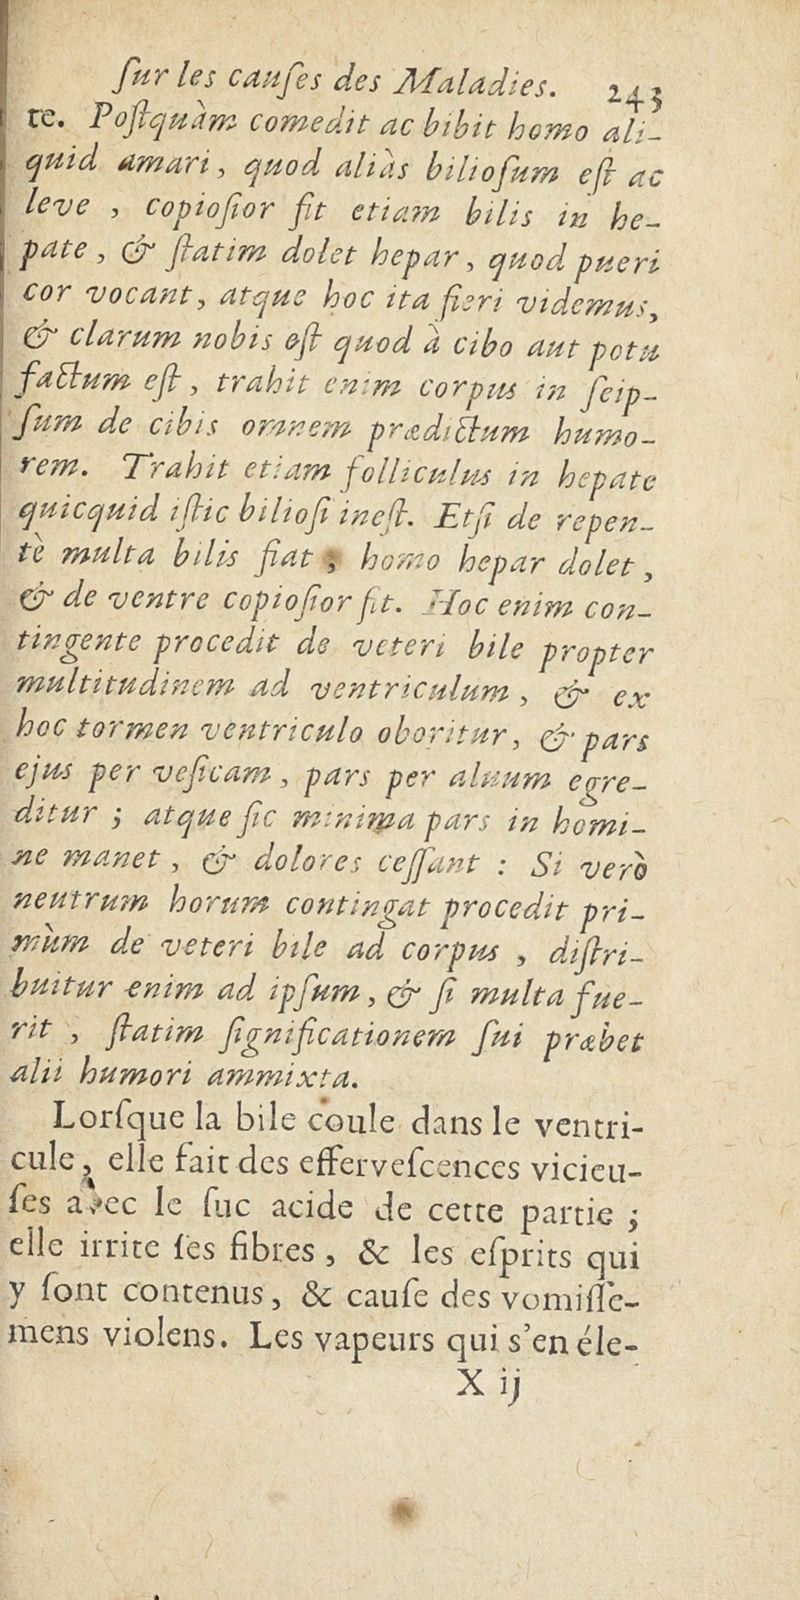 ſur les cauſes des Maladies. 243
re. Poſtquàm comedit ac bibit homo ali-
quid amari, quod aliàs bilioſum eſt ac
leve , copioſior fit etiam bilis in he-
pate, & ſtatim dolet hepar, quod pueri
cor vocant, atque hoc ita fieri videmus,
& clarum nobis eſt quod à cibo aut potu
factum eſt, trahit enim corpus in ſeip-
ſum de cibis omnem prædictum humo-
rem. Trahit etiam folliculus in hepate
quicquid iſtic bilioſi ineſt. Etſi de repen-
tè multa bilis fiat , homo hepar dolet,
& de ventre copioſior fit. Hoc enim con-
tingente procedit de veteri bile propter
multitudinem ad ventriculum, & ex
hoc tormen ventriculo oboritur, & pars
ejus per veſicam, pars per aluum egre-
ditur ; atque ſic minima pars in homi-
ne manet, & dolores ceſſant : Si verò
neutrum horum contingat procedit pri-
mùm de veteri bile ad corpus , diſtri-
buitur enim ad ipſum, & ſi multa fue-
rit , ſtatim ſignificationem ſui præbet
alii humori ammixta.
Lorſque la bile coule dans le ventri-
cule, elle fait des efferveſcences vicieu-
ſes avec le ſuc acide de cette partie ;
elle irrite ſes fibres, & les eſprits qui
y ſont contenus, & cauſe des vomiſſe-
mens violens. Les vapeurs qui s'en éle-
X ij